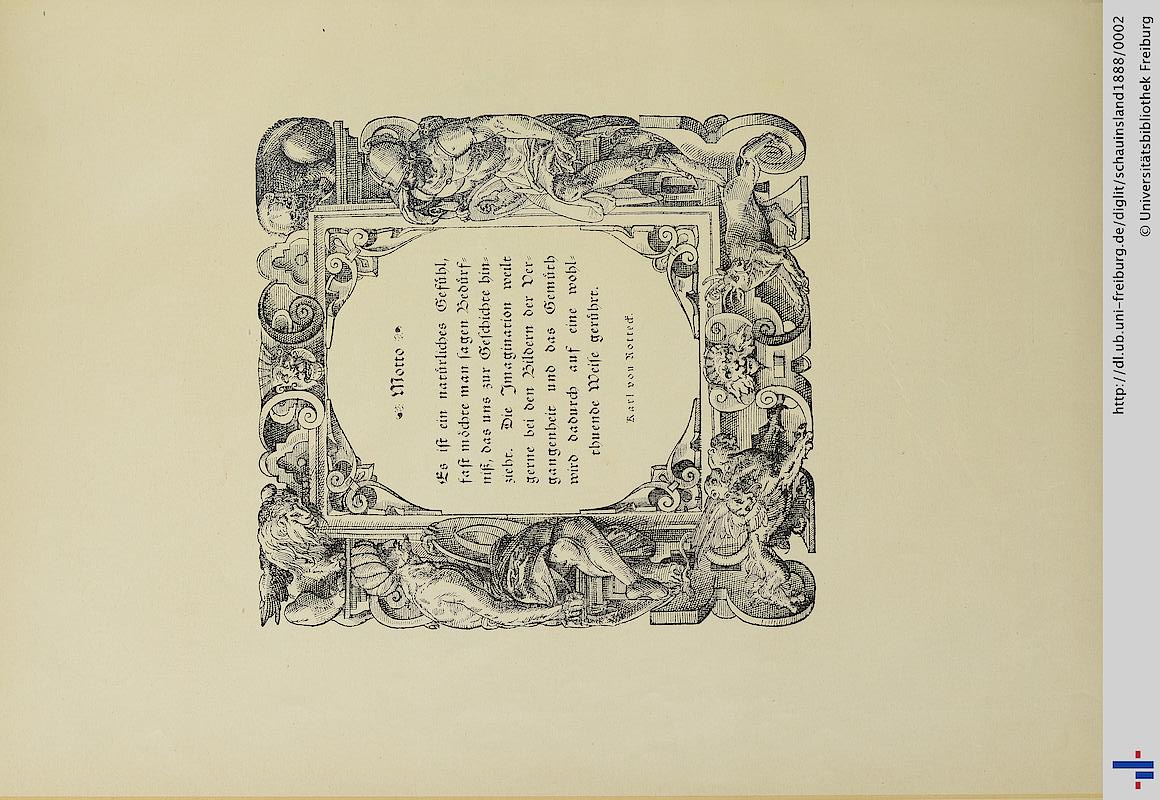 Motto
Es ist ein natürliches Gefühl,
fast möchte man sagen Bedürf-
niß, das uns zur Geschichte hin-
zieht. Die Imagination weilt
gerne bei den Bildern der Ver-
gangenheit und das Gemüth
wird dadurch auf eine wohl-
thuende Weise gerührt.
Karl von Rotteck.
http://dl.ub.uni-freiburg.de/diglit/schauinsland1888/0002
© Universitätsbibliothek Freiburg